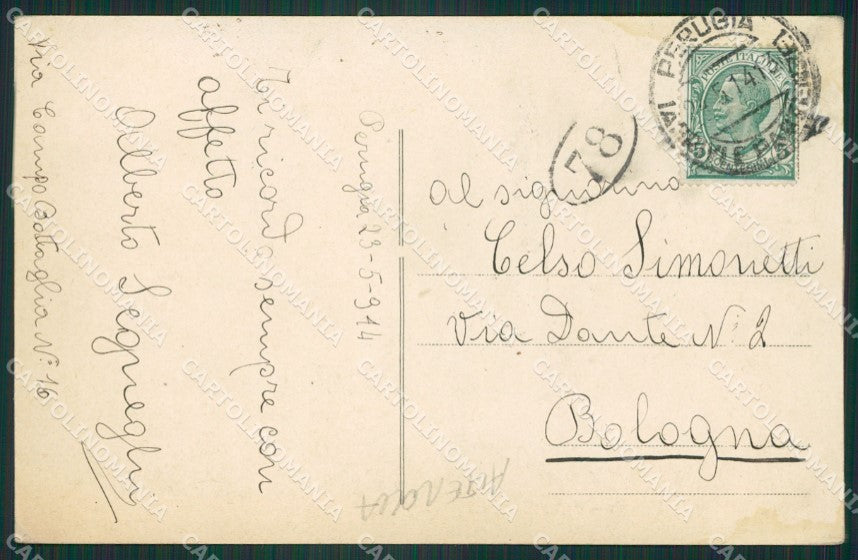 Perugia 23-5-914
Ti ricorda sempre con
affetto
Alberto
Via Campo Battaglia N.º 16
PERUGIA
POSTE ITALIANE
78
al signorino
Celso Simonetti
Via Dante N.º 2
Bologna
CARTOLINOMANIA